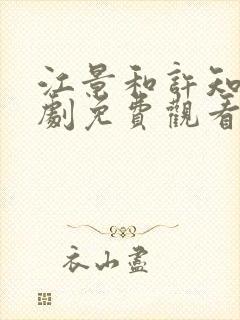 江景和許知
劇免費觀看
衣山盡